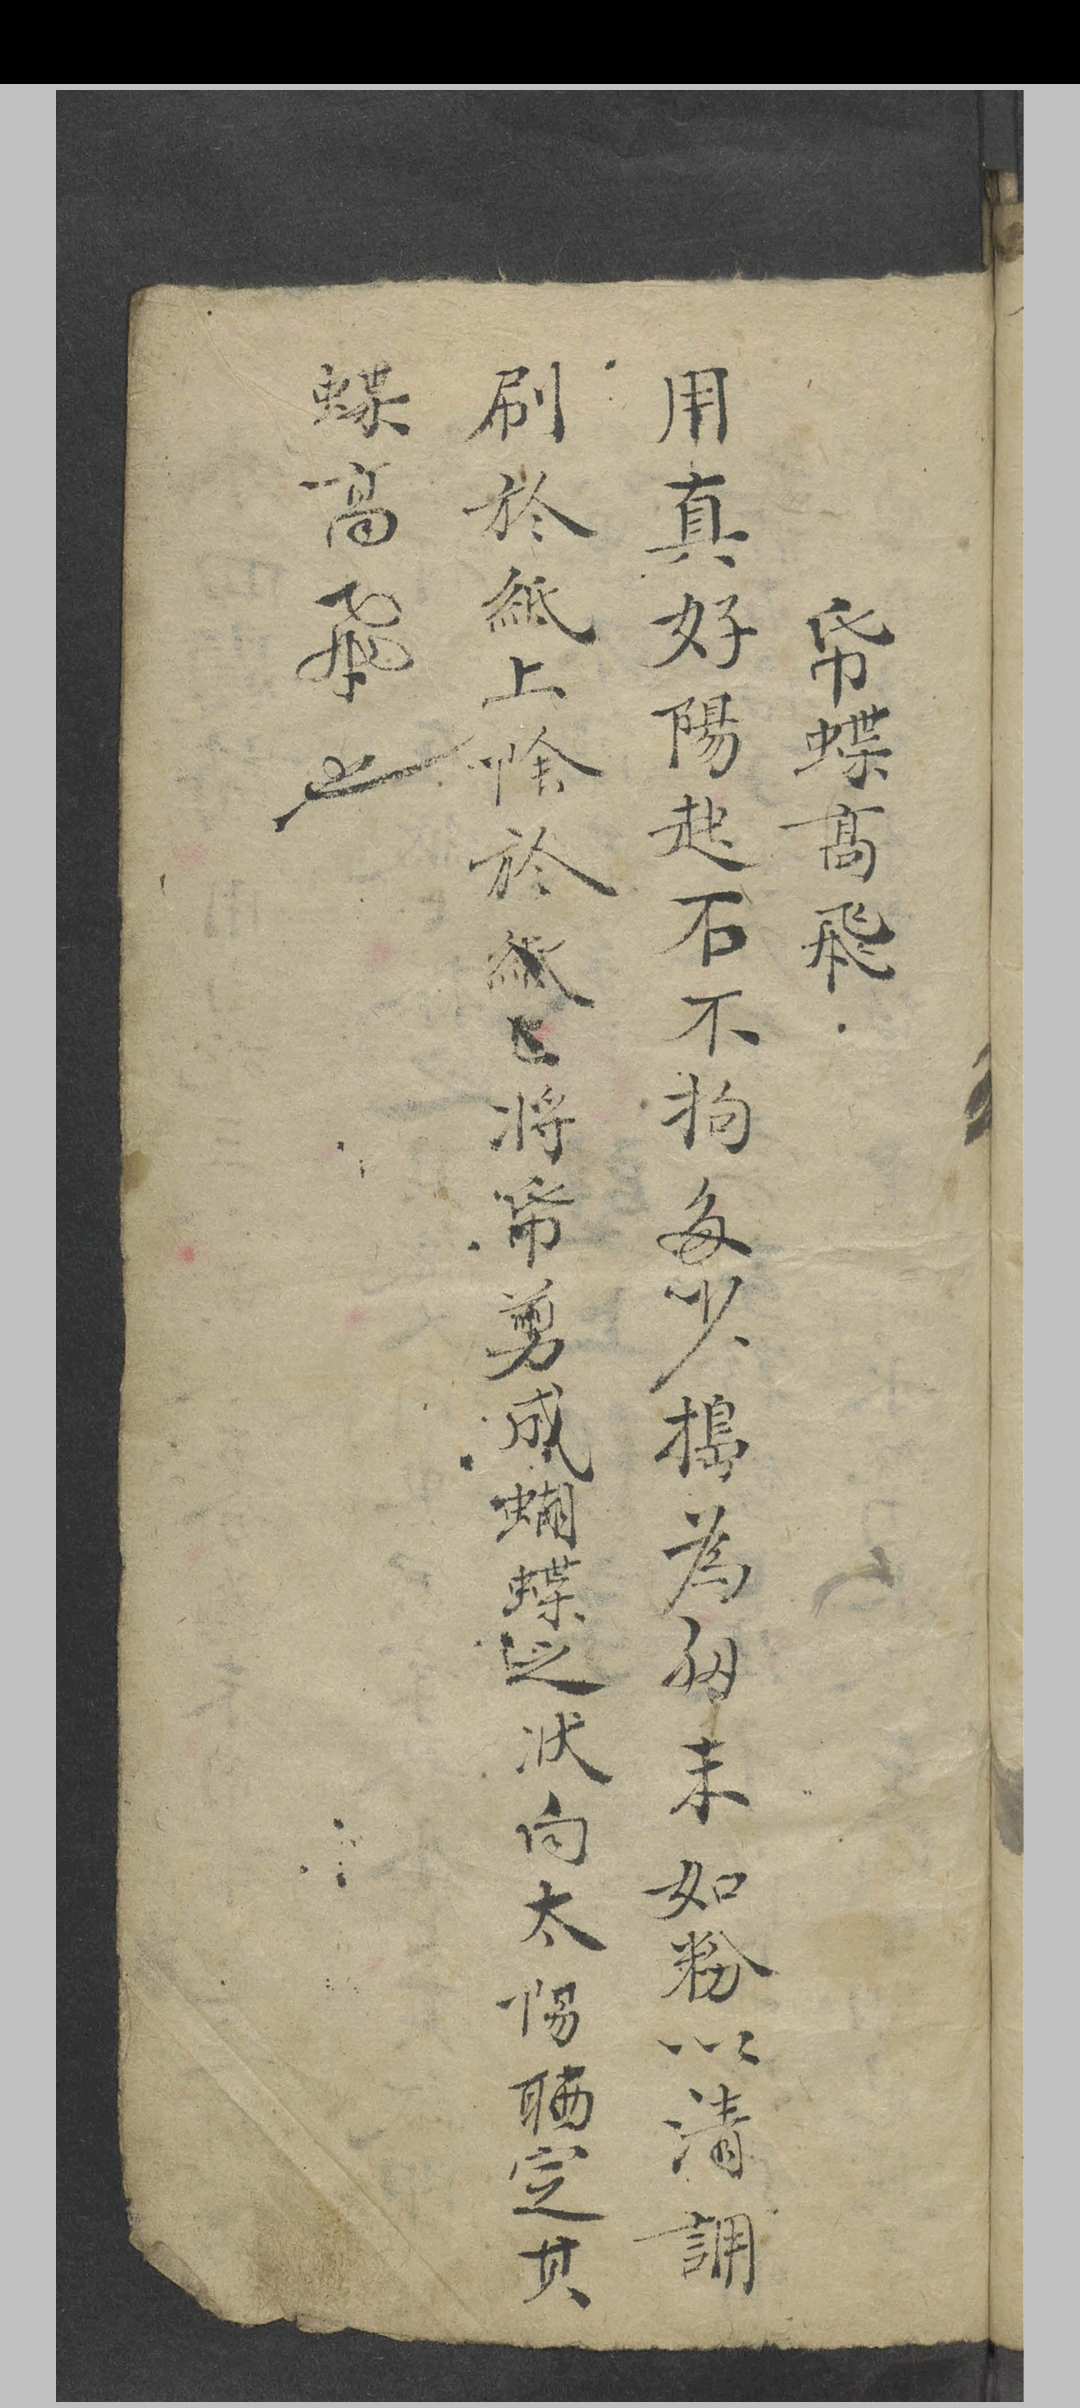 帋蝶高飛
用真好陽起石不拘多少搗為細末如粉以清調
刷於紙上於紙上将帋剪成蝴蝶之狀向太陽晒定其
蝶高飛也